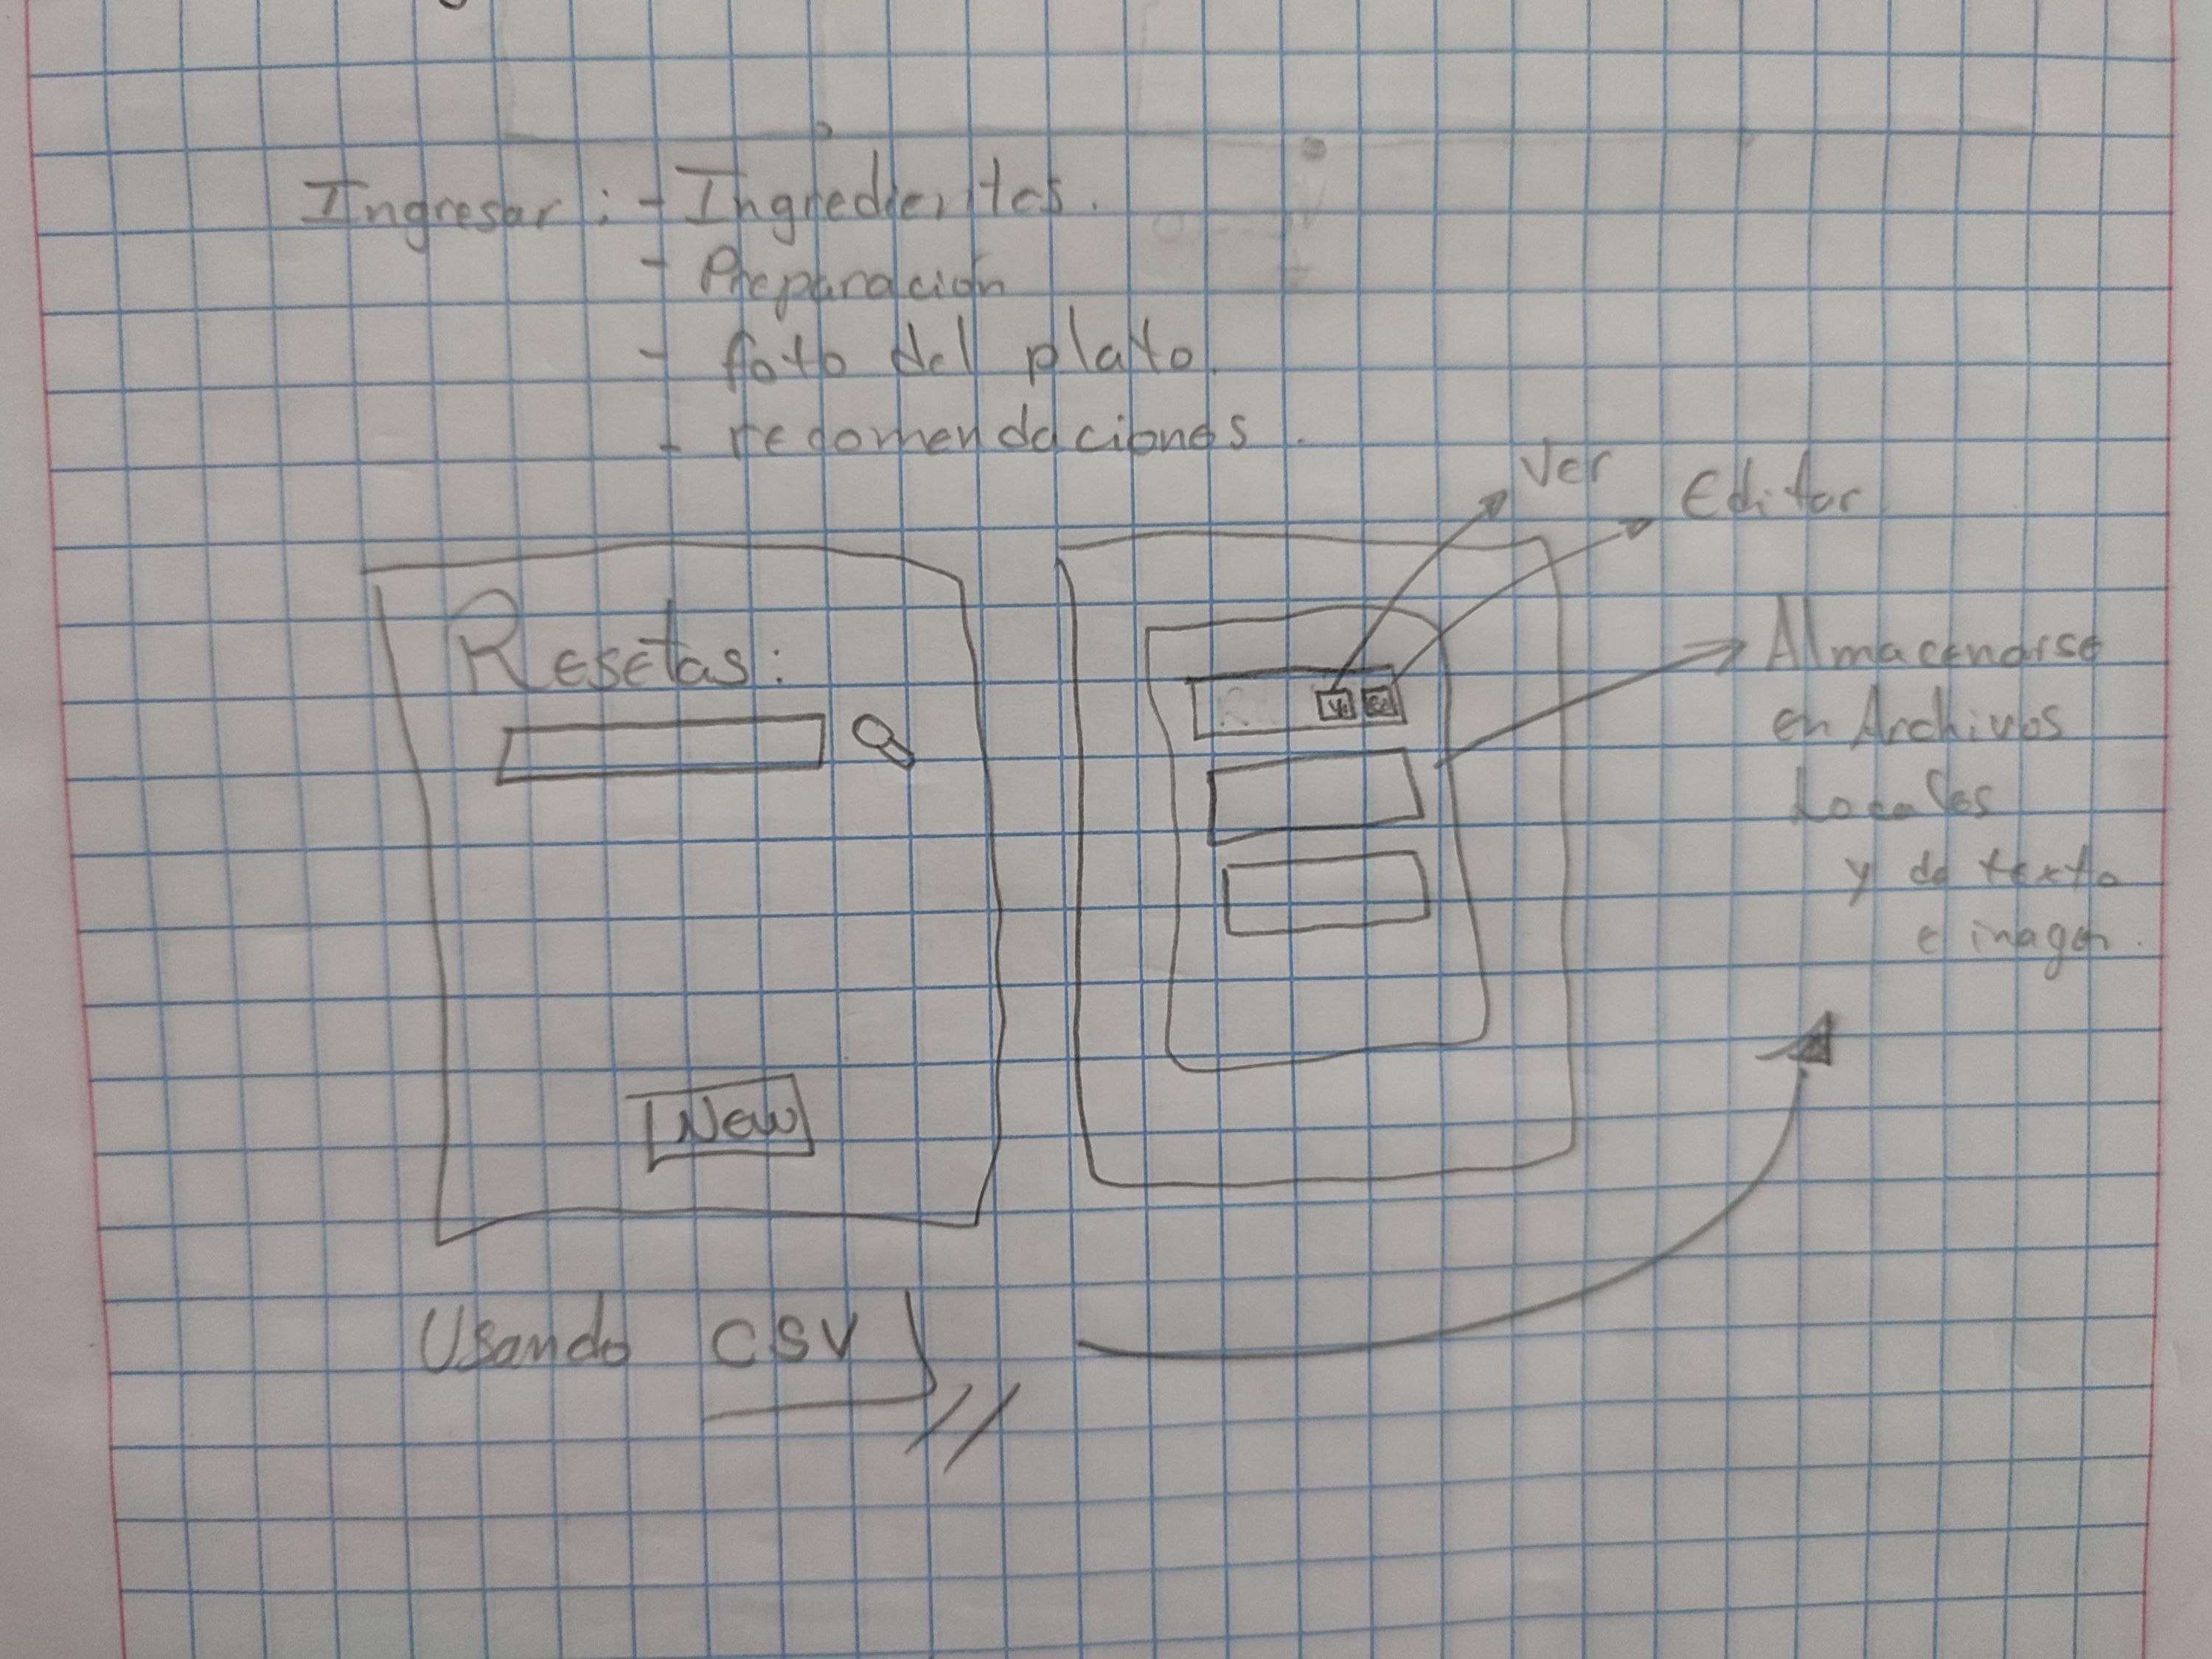 Ingresar : - Ingredientes.
- Preparación
- foto del plato.
- recomendaciones.
Ver
Editar
Resetas:
Ve Ed
Almacenarse
en Archivos
Locales
y de texto
e imagen.
New
Usando CSV